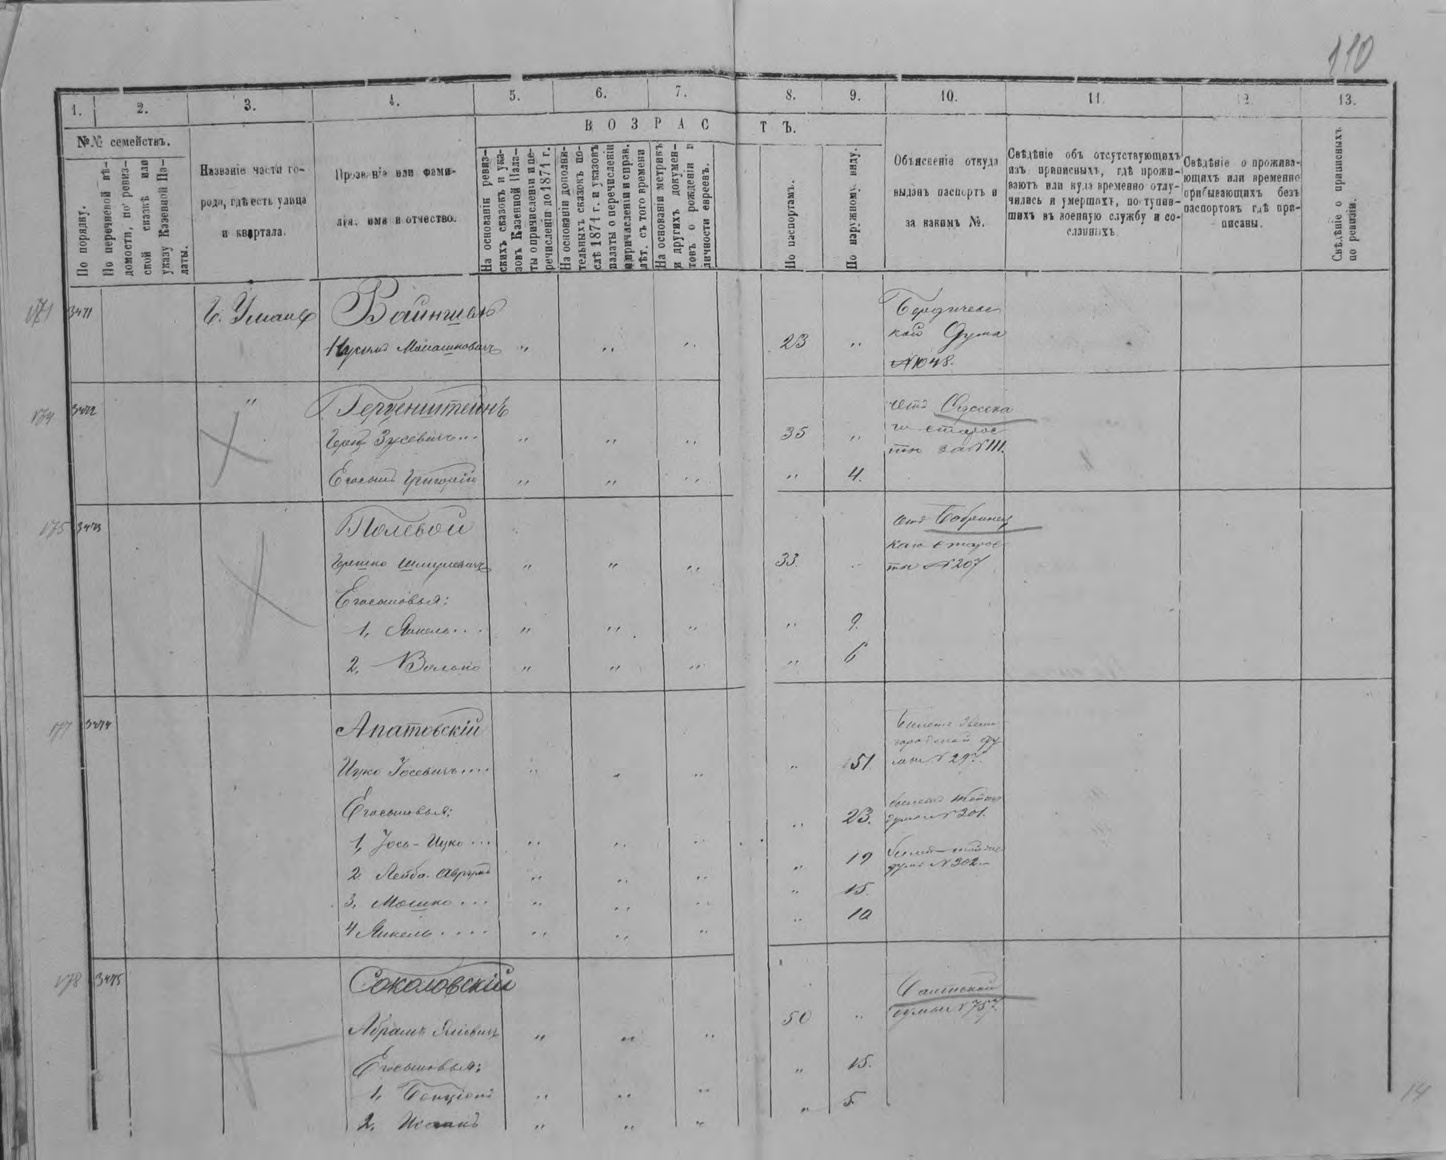 110
1.
2.
3.
4.
5.
6.
7.
8.
9.
10.
11.
12.
13.
№№ семействъ.
По порядку.
По перечневой вѣ-
домости, по ревиз-
ской сказкѣ или
указу Казенной Па-
латы.
Названіе части го-
рода, гдѣ есть улица
и квартала.
Прозваніе или фами-
лія, имя и отчество.
ВОЗРАСТЪ.
На основаніи ревиз-
скихъ сказокъ и ука-
зовъ Казенной Пала-
ты о причисленіи и пе-
речисленіи до 1871 г.
На основаніи дополни-
тельныхъ сказокъ по-
слѣ 1871 г. и указовъ
палаты о перечисленіи
и причисленіи и справ.
лѣт. съ того времени
На основаніи метрикъ
и другихъ докумен-
товъ о рожденіи и
личности евреевъ.
По паспортамъ.
По наружному виду.
Объясненіе откуда
выданъ паспортъ и
за какимъ №.
Свѣдѣніе объ отсутствующихъ
изъ приписныхъ, гдѣ прожи-
ваютъ или куда временно отлу-
чились и умершихъ, поступив-
шихъ въ военную службу и со-
сланныхъ.
Свѣдѣніе о прожива-
ющихъ или временно
прибывающихъ безъ
паспортовъ гдѣ при-
писаны.
Свѣдѣніе о приписныхъ
по ревизіи.
171
3471
Г. Умань
Вайншель
23
Бердичевс
кой Дума
№ 1048.
174
3472
Герценштейнъ
Зусевичъ
35
Одесска
го старос
ты за № 111.
Его сынъ Григорій
4.
175
3473
Полевой
Гершко Шмулевичъ
33.
Бобринец
каго старос
ты № 207
Его сыновья:
1, Янкель
9.
2, Волько
6
177
3474
Апатовскій
Ицко Іосевичъ
51
городской ду
мы № 297
Его сыновья:
23.
думы № 301.
1, Іось-Ицко
19
думы № 302
2 Лейба
15.
3, Мошко
10
4 Янкель
178
3475
Соколовскій
50
думы № 757.
Абрамъ
Его сыновья:
15.
1,
5.
2, Исаакъ
14